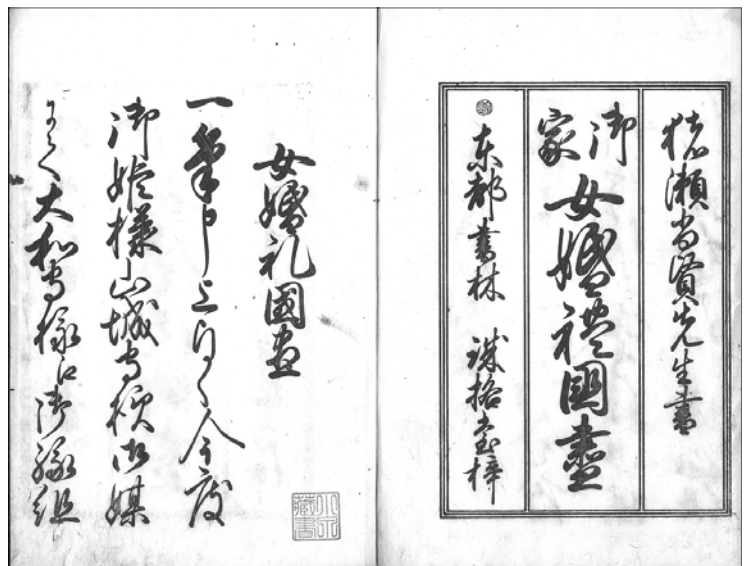 猪瀬尚賢先生書
御家 女婚禮國盡
東都書林
女婚礼國盡
一筆申上まいらせ候今度
御姫様山城守様御媒
にて大和守様江御縁組